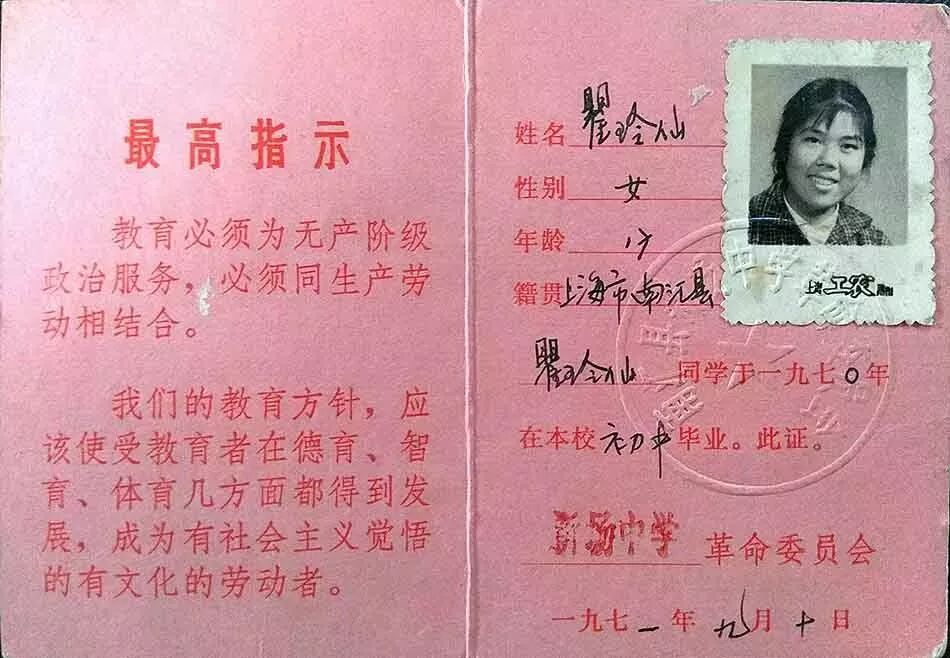 最高指示
教育必须为无产阶级
政治服务，必须同生产劳
动相结合。
我们的教育方针，应
该使受教育者在德育、智
育、体育几方面都得到发
展，成为有社会主义觉悟
的有文化的劳动者。
姓名 瞿玲仙
性别 女
年龄
籍贯 上海市南汇县
瞿玲仙 同学于一九七〇年
在本校初中毕业。此证。
新场中学 革命委员会
一九七一年九月十日